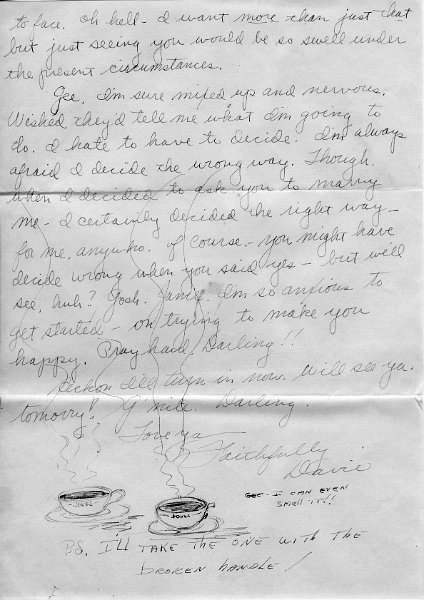 to face. Oh hell - I want more than just that
but just seeing you would be so swell under
the present circumstances.
Gee, I'm sure mixed up and nervous.
Wished they'd tell me what I'm going to
do. I hate to have to decide. I'm always
afraid I decide the wrong way. Though.
when I decided to ask you to marry
me - I certainly decided the right way -
for me, anyho. Of course - you might have
decide wrong when you said yes - but we'll
see, huh? Gosh. I'm so anxious to
get started - on trying to make you
happy. Pray hard, Darling!!
Reckon I'll turn in now. Will see ya.
tomorry! G'nite. Darling.
Love ya
Faithfully
Davie
GEE - I CAN EVEN
SMELL IT!!
JONES
JONES
P.S. I'LL TAKE THE ONE WITH THE
BROKEN HANDLE!